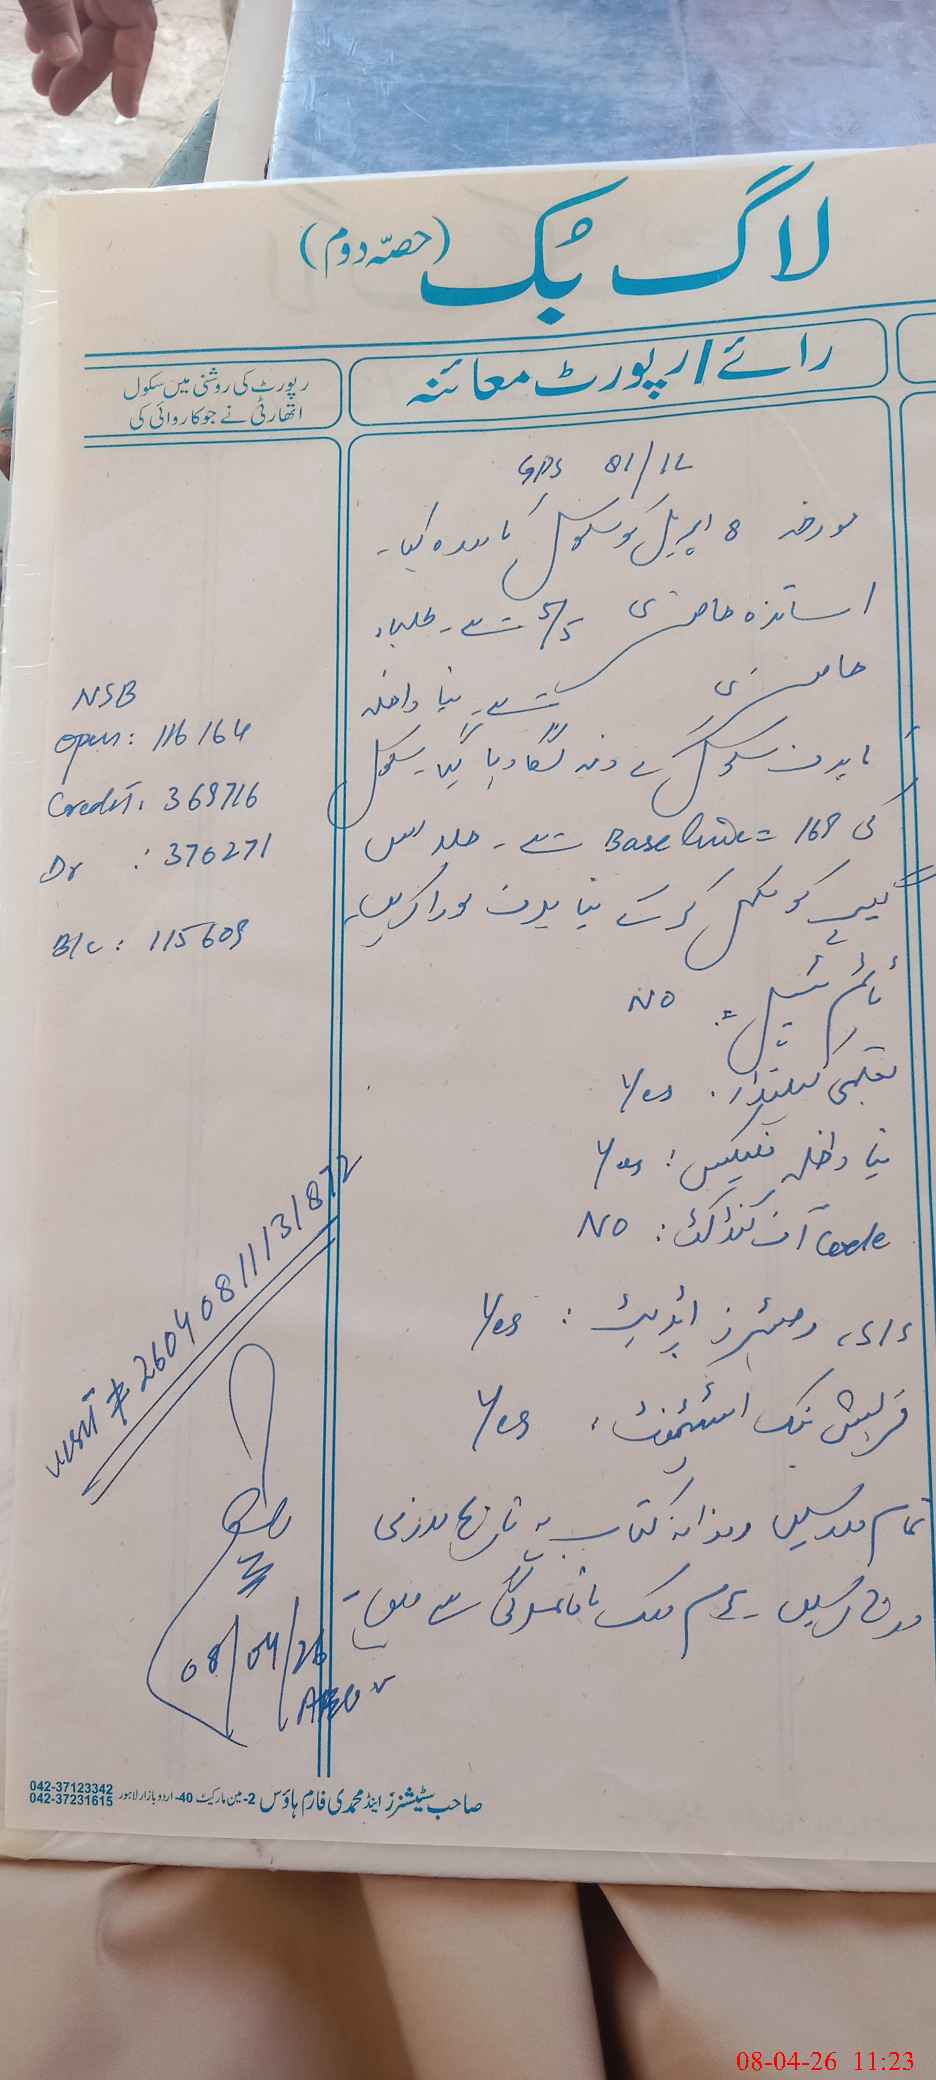 لاگ بُک (حصّہ دوم)
رائے / رپورٹ معائنہ
رپورٹ کی روشنی میں سکول
اتھارٹی نے جو کاروائی کی
GPS 81/12
مورخہ 8 اپریل کو سکول کا دورہ کیا۔
اساتذہ حاضری 5/5 ہے۔ طلباء
حاضری ہے۔ نیا داخلہ
سکول کے ذمہ لگا دیا گیا۔ سکول
کی Base line = 169 ہے۔ جلد اس
گیپ کو مکمل کر کے نیا ہدف پورا کریں۔
ٹائم ٹیبل: NO
تعلیمی کیلنڈر: Yes
نیا داخلہ فلیکس: Yes
Code آف کنڈکٹ: NO
رجسٹرز اپڈیٹ: Yes
فریش بنک اسٹیٹمنٹ: Yes
تمام مدرسین روزانہ کتاب پہ تاریخ
ہوم ورک باقاعدگی سے
NSB
Open: 116164
Credit: 369716
Dr : 370271
B/c: 115609
Visit # 260408111131872
08/04/26
AEO
صاحب سٹیشنرز اینڈ محمدی فارم ہاؤس 2- مین مارکیٹ 40- اردو بازار لاہور
042-37123342
042-37231615
08-04-26 11:23